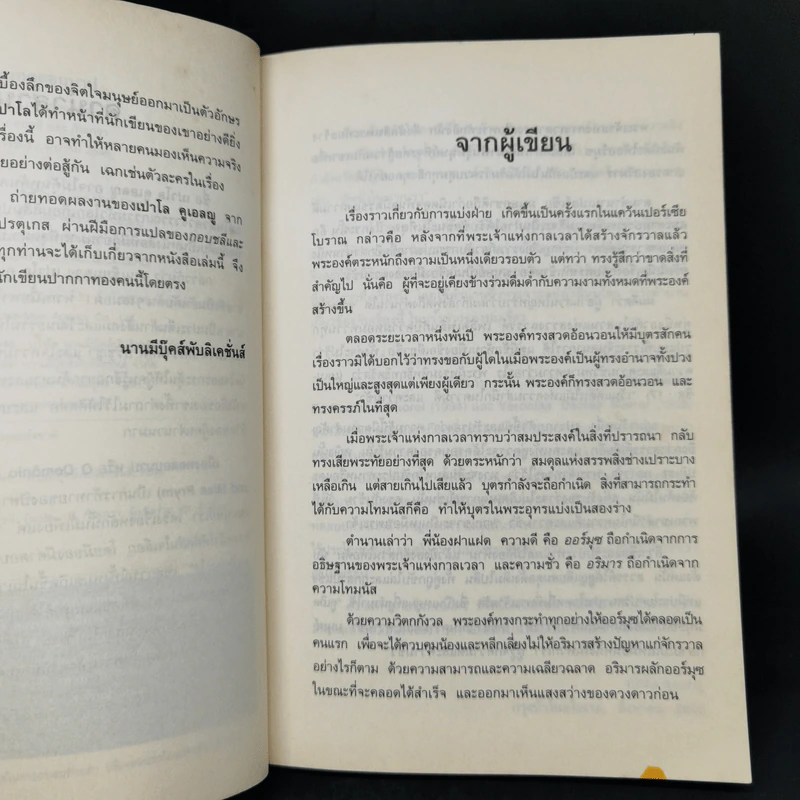 บื้องลึกของจิตใจมนุษย์ออกมาเป็นตัวอักษร
ปาโลได้ทำหน้าที่นักเขียนของเขาอย่างดียิ่ง
รื่องนี้ อาจทำให้หลายคนมองเห็นความจริง
ยอย่างต่อสู้กัน เฉกเช่นตัวละครในเรื่อง
ถ่ายทอดผลงานของเปาโล คูเอลญู จาก
ปรตุเกส ผ่านฝีมือการแปลของกอบชลีและ
ทุกท่านจะได้เก็บเกี่ยวจากหนังสือเล่มนี้ จึง
นักเขียนปากกาทองคนนี้โดยตรง
นานมีบุ๊คส์พับลิเคชั่นส์
จากผู้เขียน
เรื่องราวเกี่ยวกับการแบ่งฝ่าย เกิดขึ้นเป็นครั้งแรกในแคว้นเปอร์เซีย
โบราณ กล่าวคือ หลังจากที่พระเจ้าแห่งกาลเวลาได้สร้างจักรวาลแล้ว
พระองค์ตระหนักถึงความเป็นหนึ่งเดียวรอบตัว แต่ทว่า ทรงรู้สึกว่าขาดสิ่งที่
สำคัญไป นั่นคือ ผู้ที่จะอยู่เคียงข้างร่วมดื่มด่ำกับความงามทั้งหมดที่พระองค์
สร้างขึ้น
ตลอดระยะเวลาหนึ่งพันปี พระองค์ทรงสวดอ้อนวอนให้มีบุตรสักคน
เรื่องราวมิได้บอกไว้ว่าทรงขอกับผู้ใดในเมื่อพระองค์เป็นผู้ทรงอำนาจทั้งปวง
เป็นใหญ่และสูงสุดแต่เพียงผู้เดียว กระนั้น พระองค์ก็ทรงสวดอ้อนวอน และ
ทรงครรภ์ในที่สุด
เมื่อพระเจ้าแห่งกาลเวลาทราบว่าสมประสงค์ในสิ่งที่ปรารถนา กลับ
ทรงเสียพระทัยอย่างที่สุด ด้วยตระหนักว่า สมดุลแห่งสรรพสิ่งช่างเปราะบาง
เหลือเกิน แต่สายเกินไปเสียแล้ว บุตรกำลังจะถือกำเนิด สิ่งที่สามารถกระทำ
ได้กับความโทมนัสก็คือ ทำให้บุตรในพระอุทรแบ่งเป็นสองร่าง
ตำนานเล่าว่า พี่น้องฝาแฝด ความดี คือ ออร์มุซ ถือกำเนิดจากการ
อธิษฐานของพระเจ้าแห่งกาลเวลา และความชั่ว คือ อริมาร ถือกำเนิดจาก
ความโทมนัส
ด้วยความวิตกกังวล พระองค์ทรงกระทำทุกอย่างให้ออร์มุซได้คลอดเป็น
คนแรก เพื่อจะได้ควบคุมน้องและหลีกเลี่ยงไม่ให้อริมารสร้างปัญหาแก่จักรวาล
อย่างไรก็ตาม ด้วยความสามารถและความเฉลียวฉลาด อริมารผลักออร์มุซ
ในขณะที่จะคลอดได้สำเร็จ และออกมาเห็นแสงสว่างของดวงดาวก่อน